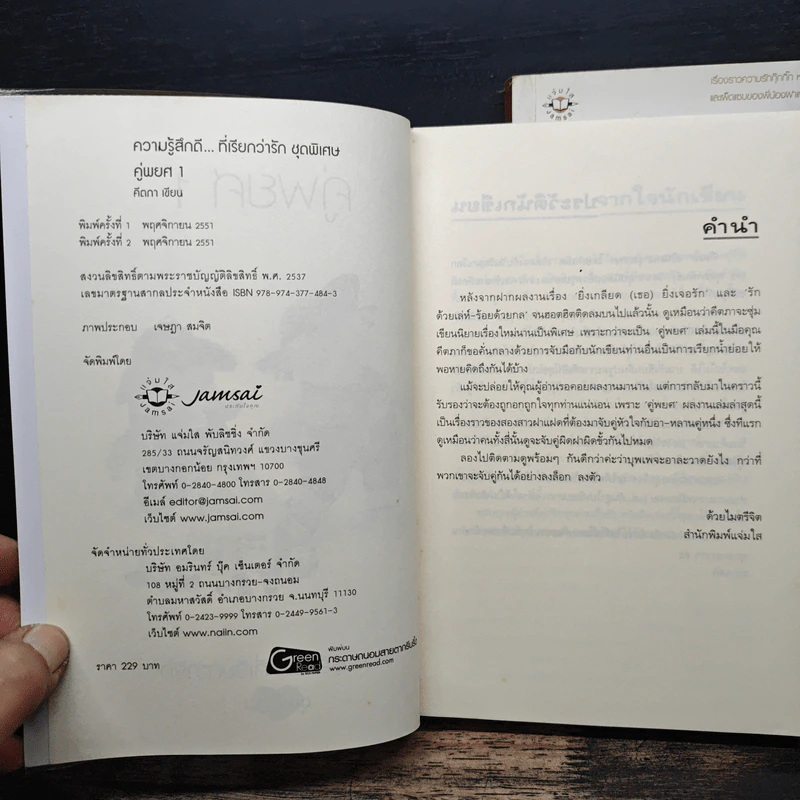 ความรู้สึกดี... ที่เรียกว่ารัก ชุดพิเศษ
คู่พยศ 1
คีตภา เขียน
พิมพ์ครั้งที่ 1 พฤศจิกายน 2551
พิมพ์ครั้งที่ 2 พฤศจิกายน 2551
สงวนลิขสิทธิ์ตามพระราชบัญญัติลิขสิทธิ์ พ.ศ. 2537
เลขมาตรฐานสากลประจำหนังสือ ISBN 978-974-377-484-3
ภาพประกอบ เจษฎา สมจิต
จัดพิมพ์โดย
แจ่มใส
Jamsai
Jamsai
บริษัท แจ่มใส พับลิชชิ่ง จำกัด
285/33 ถนนจรัญสนิทวงศ์ แขวงบางขุนศรี
เขตบางกอกน้อย กรุงเทพฯ 10700
โทรศัพท์ 0-2840-4800 โทรสาร 0-2840-4848
อีเมล์ editor@jamsai.com
เว็บไซต์ www.jamsai.com
จัดจำหน่ายทั่วประเทศโดย
บริษัท อมรินทร์ บุ๊ค เซ็นเตอร์ จำกัด
108 หมู่ที่ 2 ถนนบางกรวย-จงถนอม
ตำบลมหาสวัสดิ์ อำเภอบางกรวย จ.นนทบุรี 11130
โทรศัพท์ 0-2423-9999 โทรสาร 0-2449-9561-3
เว็บไซต์ www.naiin.com
ราคา 229 บาท
Green Read
พิมพ์บน
กระดาษถนอมสายตากรีนรี้ด
www.greenread.com
เรื่องราวความรักกุ๊กกิ๊ก
และเผ็ดแซบของพี่น้องฝาแ
แจ่มใส
Jamsai
คำนำ
หลังจากฝากผลงานเรื่อง 'ยิ่งเกลียด (เธอ) ยิ่งเจอรัก' และ 'รัก
ด้วยเล่ห์-ร้อยด้วยกล' จนฮอตฮิตติดลมบนไปแล้วนั้น ดูเหมือนว่าคีตภาจะซุ่ม
เขียนนิยายเรื่องใหม่นานเป็นพิเศษ เพราะกว่าจะเป็น 'คู่พยศ' เล่มนี้ในมือคุณ
คีตภาก็ขอคั่นกลางด้วยการจับมือกับนักเขียนท่านอื่นเป็นการเรียกน้ำย่อยให้
พอหายคิดถึงกันได้บ้าง
แม้จะปล่อยให้คุณผู้อ่านรอคอยผลงานมานาน แต่การกลับมาในคราวนี้
รับรองว่าจะต้องถูกอกถูกใจทุกท่านแน่นอน เพราะ 'คู่พยศ' ผลงานเล่มล่าสุดนี้
เป็นเรื่องราวของสองสาวฝาแฝดที่ต้องมาจับคู่หัวใจกับอา-หลานคู่หนึ่ง ซึ่งทีแรก
ดูเหมือนว่าคนทั้งสี่นั้นดูจะจับคู่ผิดฝาผิดขั้วกันไปหมด
ลองไปติดตามดูพร้อมๆ กันดีกว่าค่ะว่าบุพเพจะอาละวาดยังไง กว่าที่
พวกเขาจะจับคู่กันได้อย่างลงล็อก ลงตัว
ด้วยไมตรีจิต
สำนักพิมพ์แจ่มใส